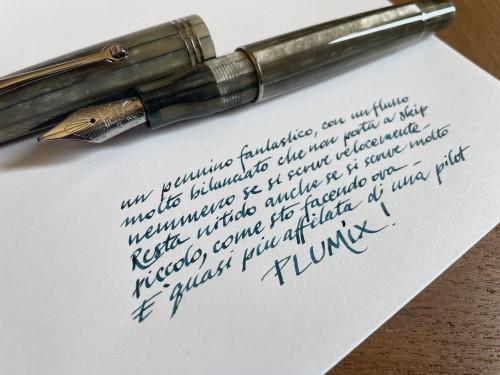 un pennino fantastico, con un flusso
molto bilanciato che non porta a skip
nemmeno se si scrive velocemente.
Resta nitido anche se si scrive molto
piccolo, come sto facendo ora -
E' quasi più affilata di una pilot
PLUMIX!